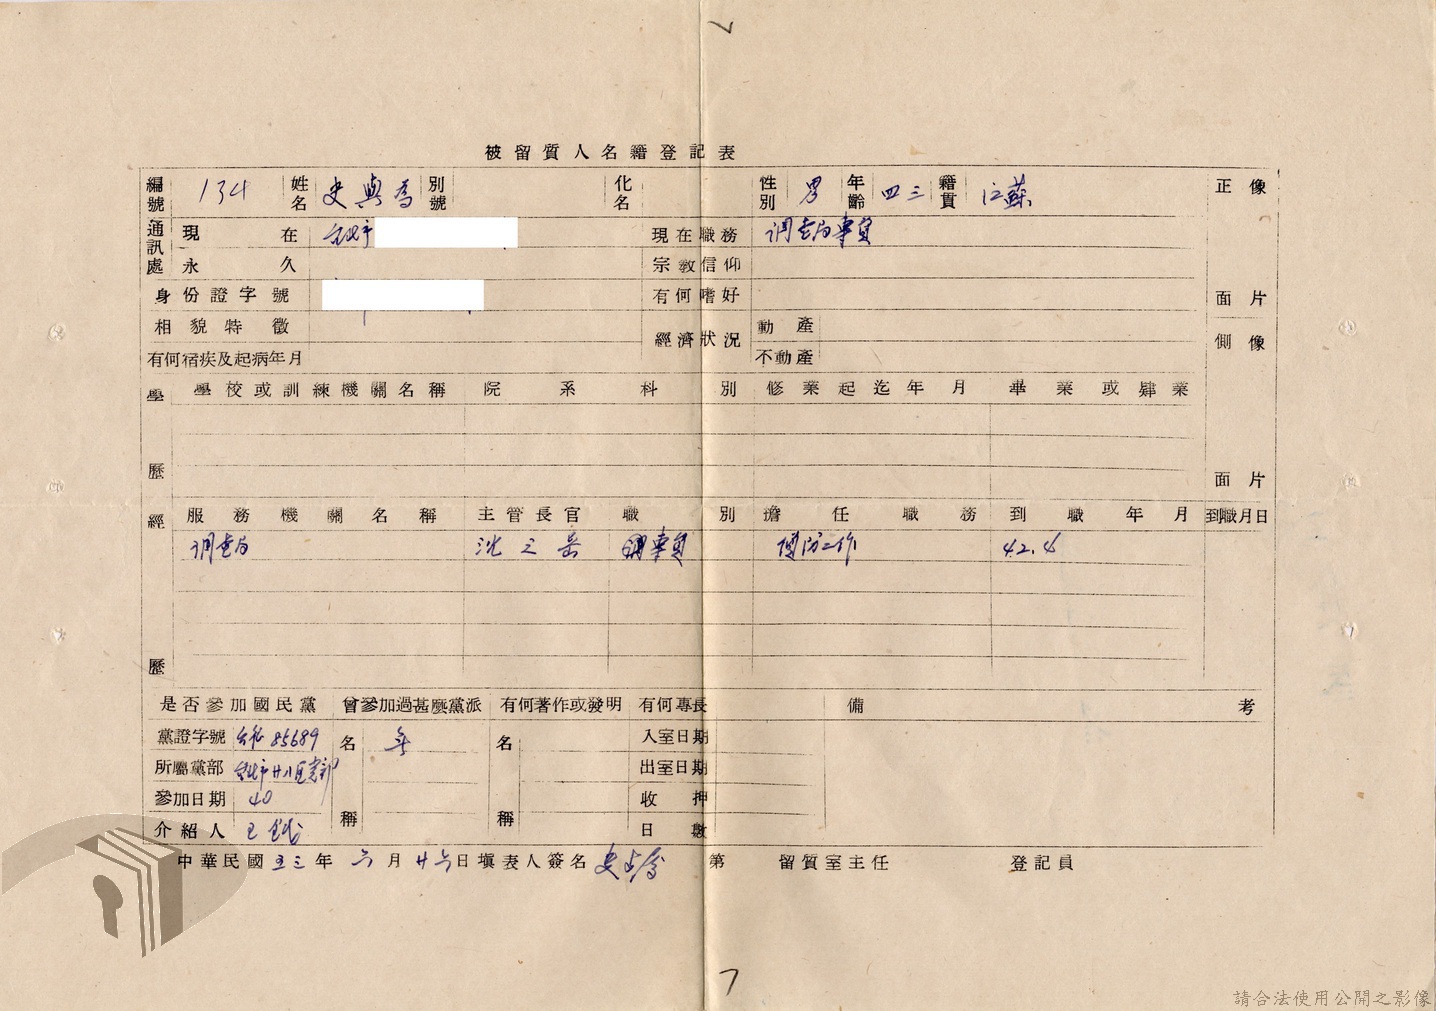 被留質人名籍登記表
編號 134 姓名 史與為 別號 化名 性別 男 年齡 四三 籍貫 江蘇 正面像片
通訊處 現在 台北市 現在職務 调查局專員
永久 宗教信仰
身份證字號 有何嗜好
相貌特徵 經濟狀況 動產
有何宿疾及起病年月 不動產
側面像片
學歷 學校或訓練機關名稱 院系科別 修業起迄年月 畢業或肄業
經歷 服務機關名稱 主管長官 職別 擔任職務 到職年月 到職月日
调查局 沈之岳 專員 偵防工作 42.4
是否參加國民黨 曾參加過甚麼黨派 有何著作或發明 有何專長 備考
黨證字號 85689 名稱 名稱 入室日期
所屬黨部 台北市廿八區黨部 出室日期
參加日期 40 收押日數
介紹人 王
中華民國五三年六月廿六日填表人簽名 史與為 第 留質室主任 登記員
請合法使用公開之影像